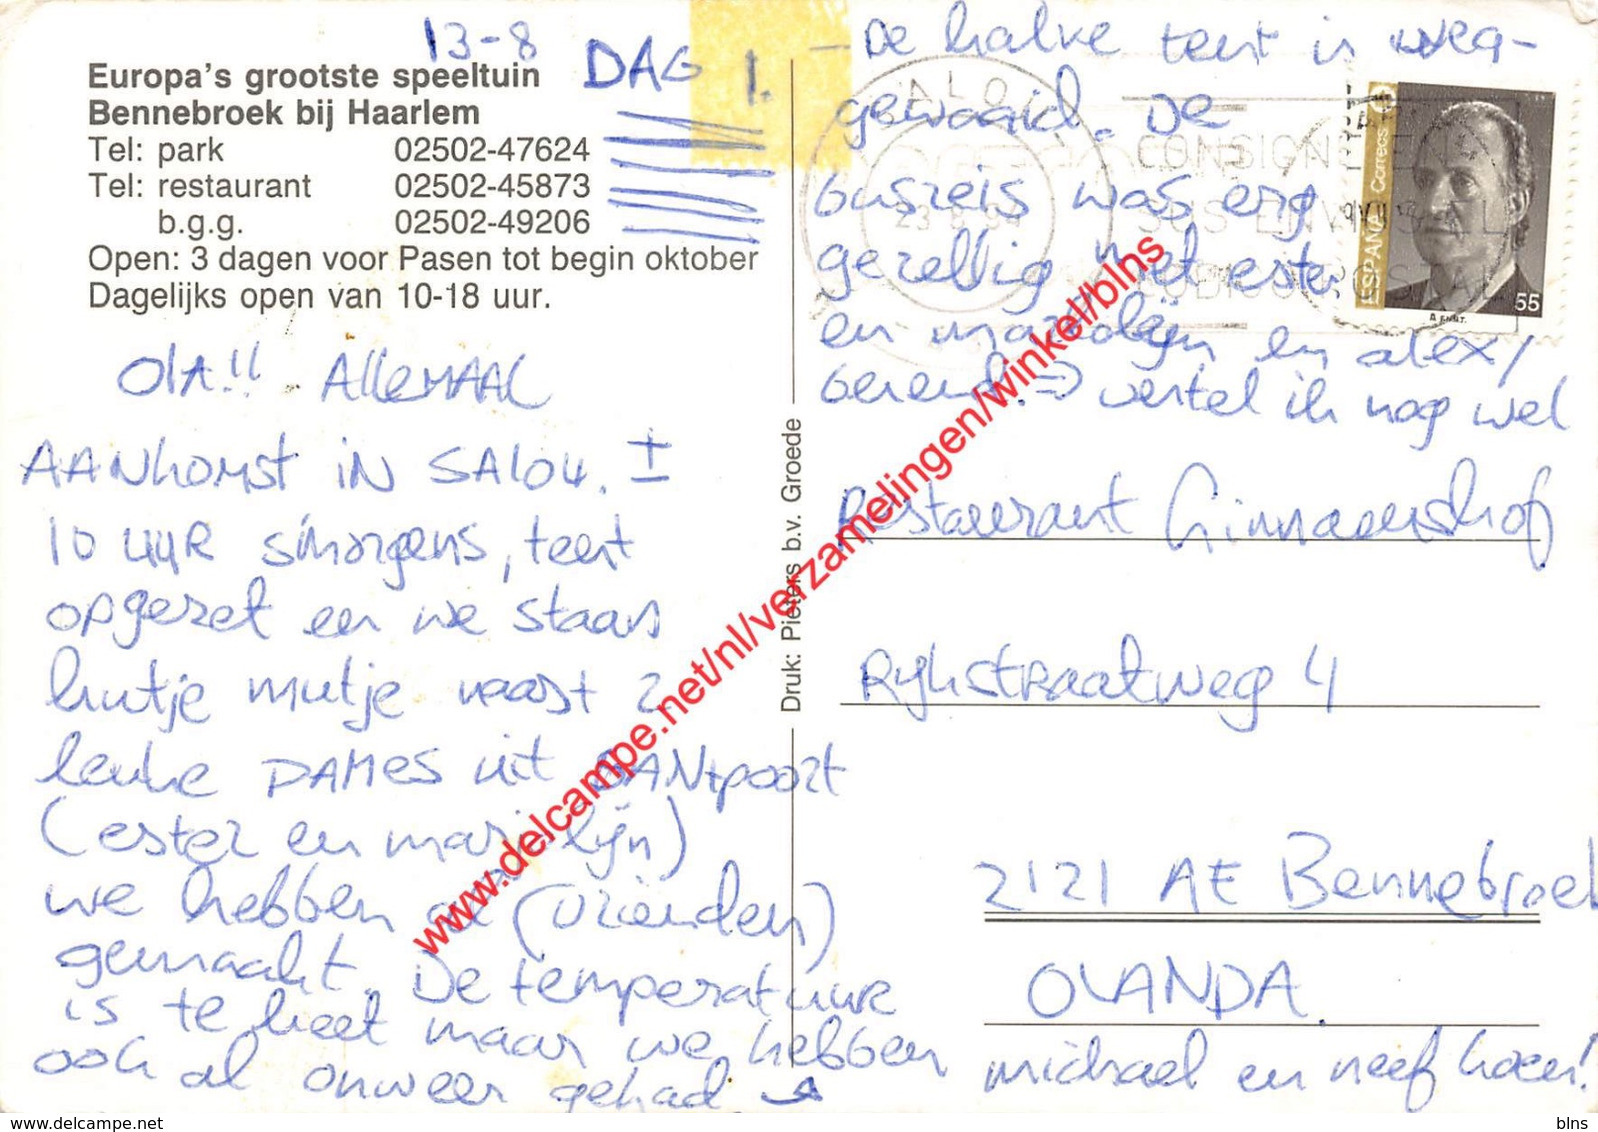 13-8 DAG 1.
Europa's grootste speeltuin
Bennebroek bij Haarlem
Tel: park 02502-47624
Tel: restaurant 02502-45873
b.g.g. 02502-49206
Open: 3 dagen voor Pasen tot begin oktober
Dagelijks open van 10-18 uur.
OlA!! AllEMAAL
AANkomst iN SAlou. ±
10 uuR smorgens, tent
opgezet en we staan
hutje mutje naast 2
leuke DAMes uit SANtpoort
(ester en marjolijn)
we hebben al (vrienden)
gemaakt. De temperatuur
is te heet maar we hebben
ook al onweer gehad →
Druk: Pieters b.v. Groede
- De halve tent is weg-
gewaaid. De
busreis was erg
gezellig met ester
en marjolijn en alex,
berend. => vertel ik nog wel
Restaurant Linnaeushof
Rijkstraatweg 4
2121 AE Bennebroek
OLANDA.
michael en neef koen!
ESPAÑA Correos
55
SALOU
CONSIGNEU EN
SUS ENVIOS EL
CODIGO POSTAL
www.delcampe.net/nl/verzamelingen/winkel/blns
delcampe.net
blns